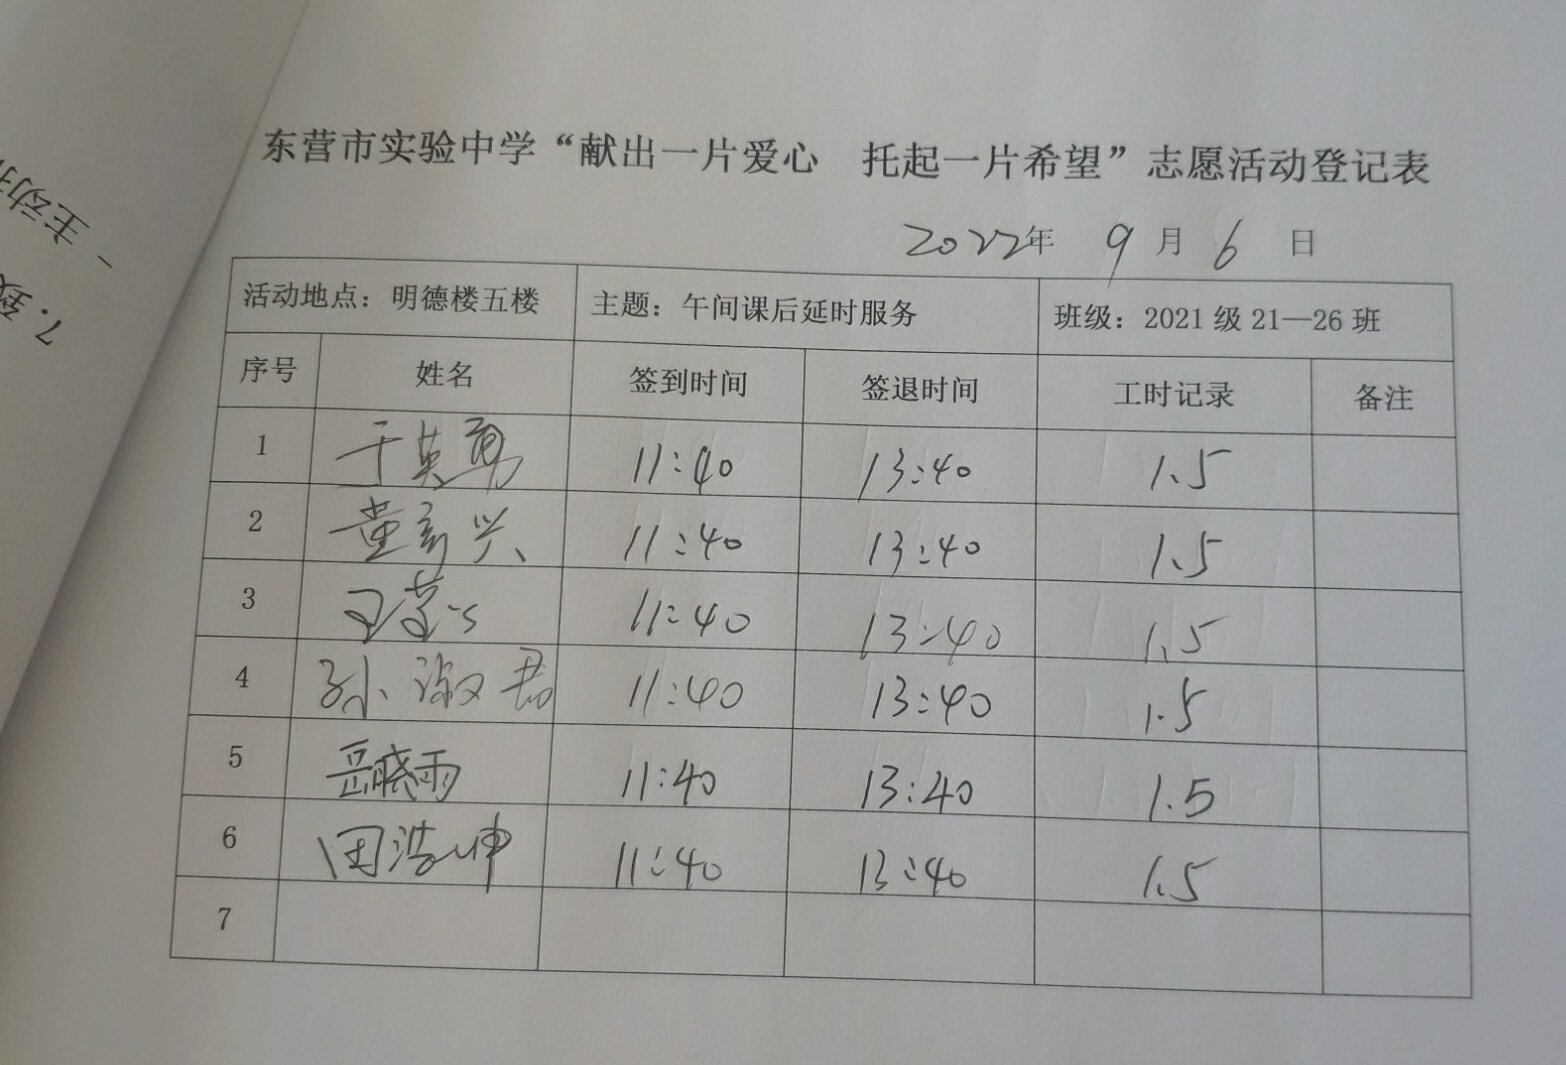 东营市实验中学“献出一片爱心 托起一片希望”志愿活动登记表
2022年 9月 6日
活动地点：明德楼五楼 主题：午间课后延时服务 班级：2021级21—26班
序号 姓名 签到时间 签退时间 工时记录 备注
1 于英勇 11:40 13:40 1.5
2 董彦兴 11:40 13:40 1.5
3 11:40 13:40 1.5
4 孙淑君 11:40 13:40 1.5
5 岳晓雨 11:40 13:40 1.5
6 田浩坤 11:40 13:40 1.5
7
7.
- 主动